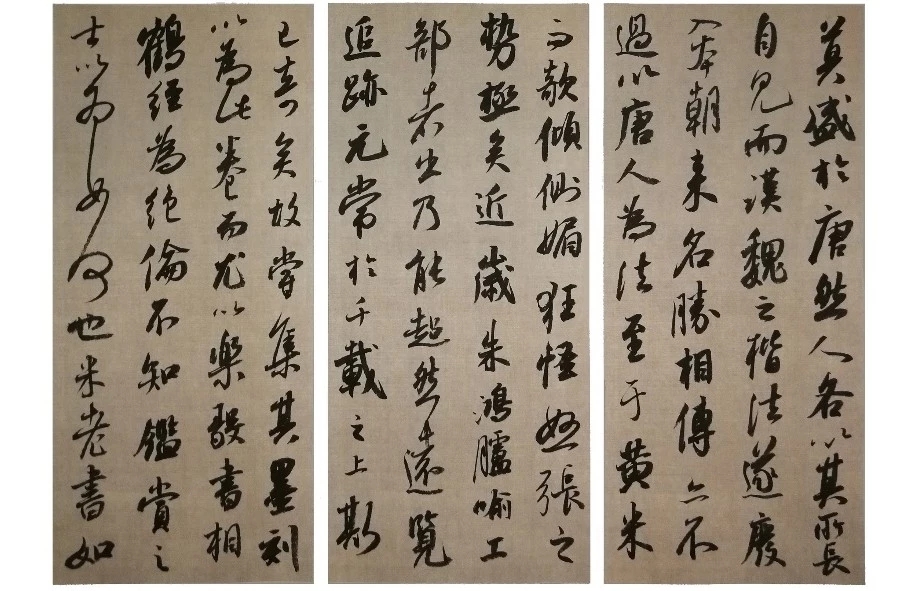 莫盛於唐然人各以其所長
自見而漢魏之楷法遂廢
入本朝来名勝相傳亦不
過以唐人為法至于黄米
而欹傾側媚狂怪怒張之
勢極矣近歲朱鴻臚喻工
部者出乃能超然遠覽
追跡元常於千載之上斯
已奇矣故嘗集其墨刻
以為此卷而尤以樂毅書相
鶴經為絕倫不知鑑賞之
士以為如何也米老書如